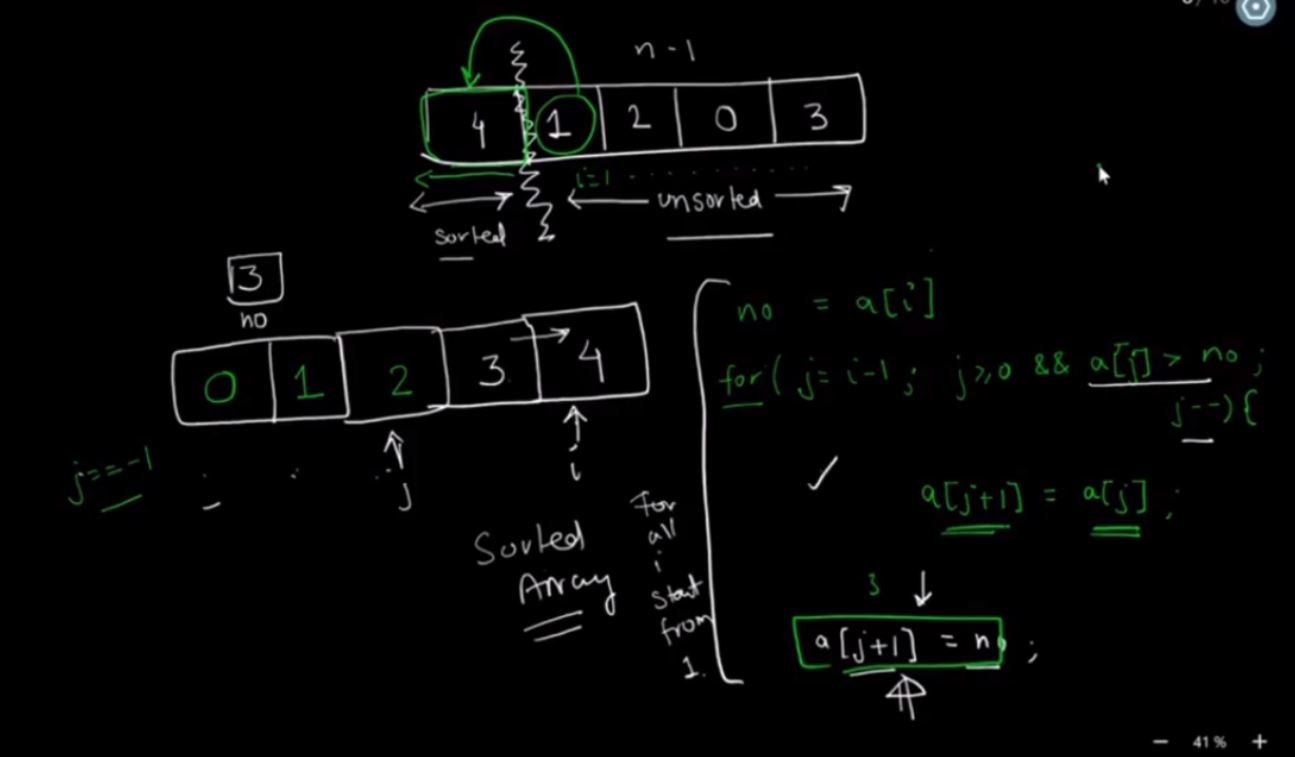 n-1
4 1 2 0 3
i=1
unsorted
sorted
3
no
0 1 2 3 4
j==-1
j
i
Sorted
Array
For
all
i
start
from
1.
no = a[i]
for( j= i-1; j≥0 && a[j] > no;
j--){
a[j+1] = a[j];
3
a[j+1] = no;
41%